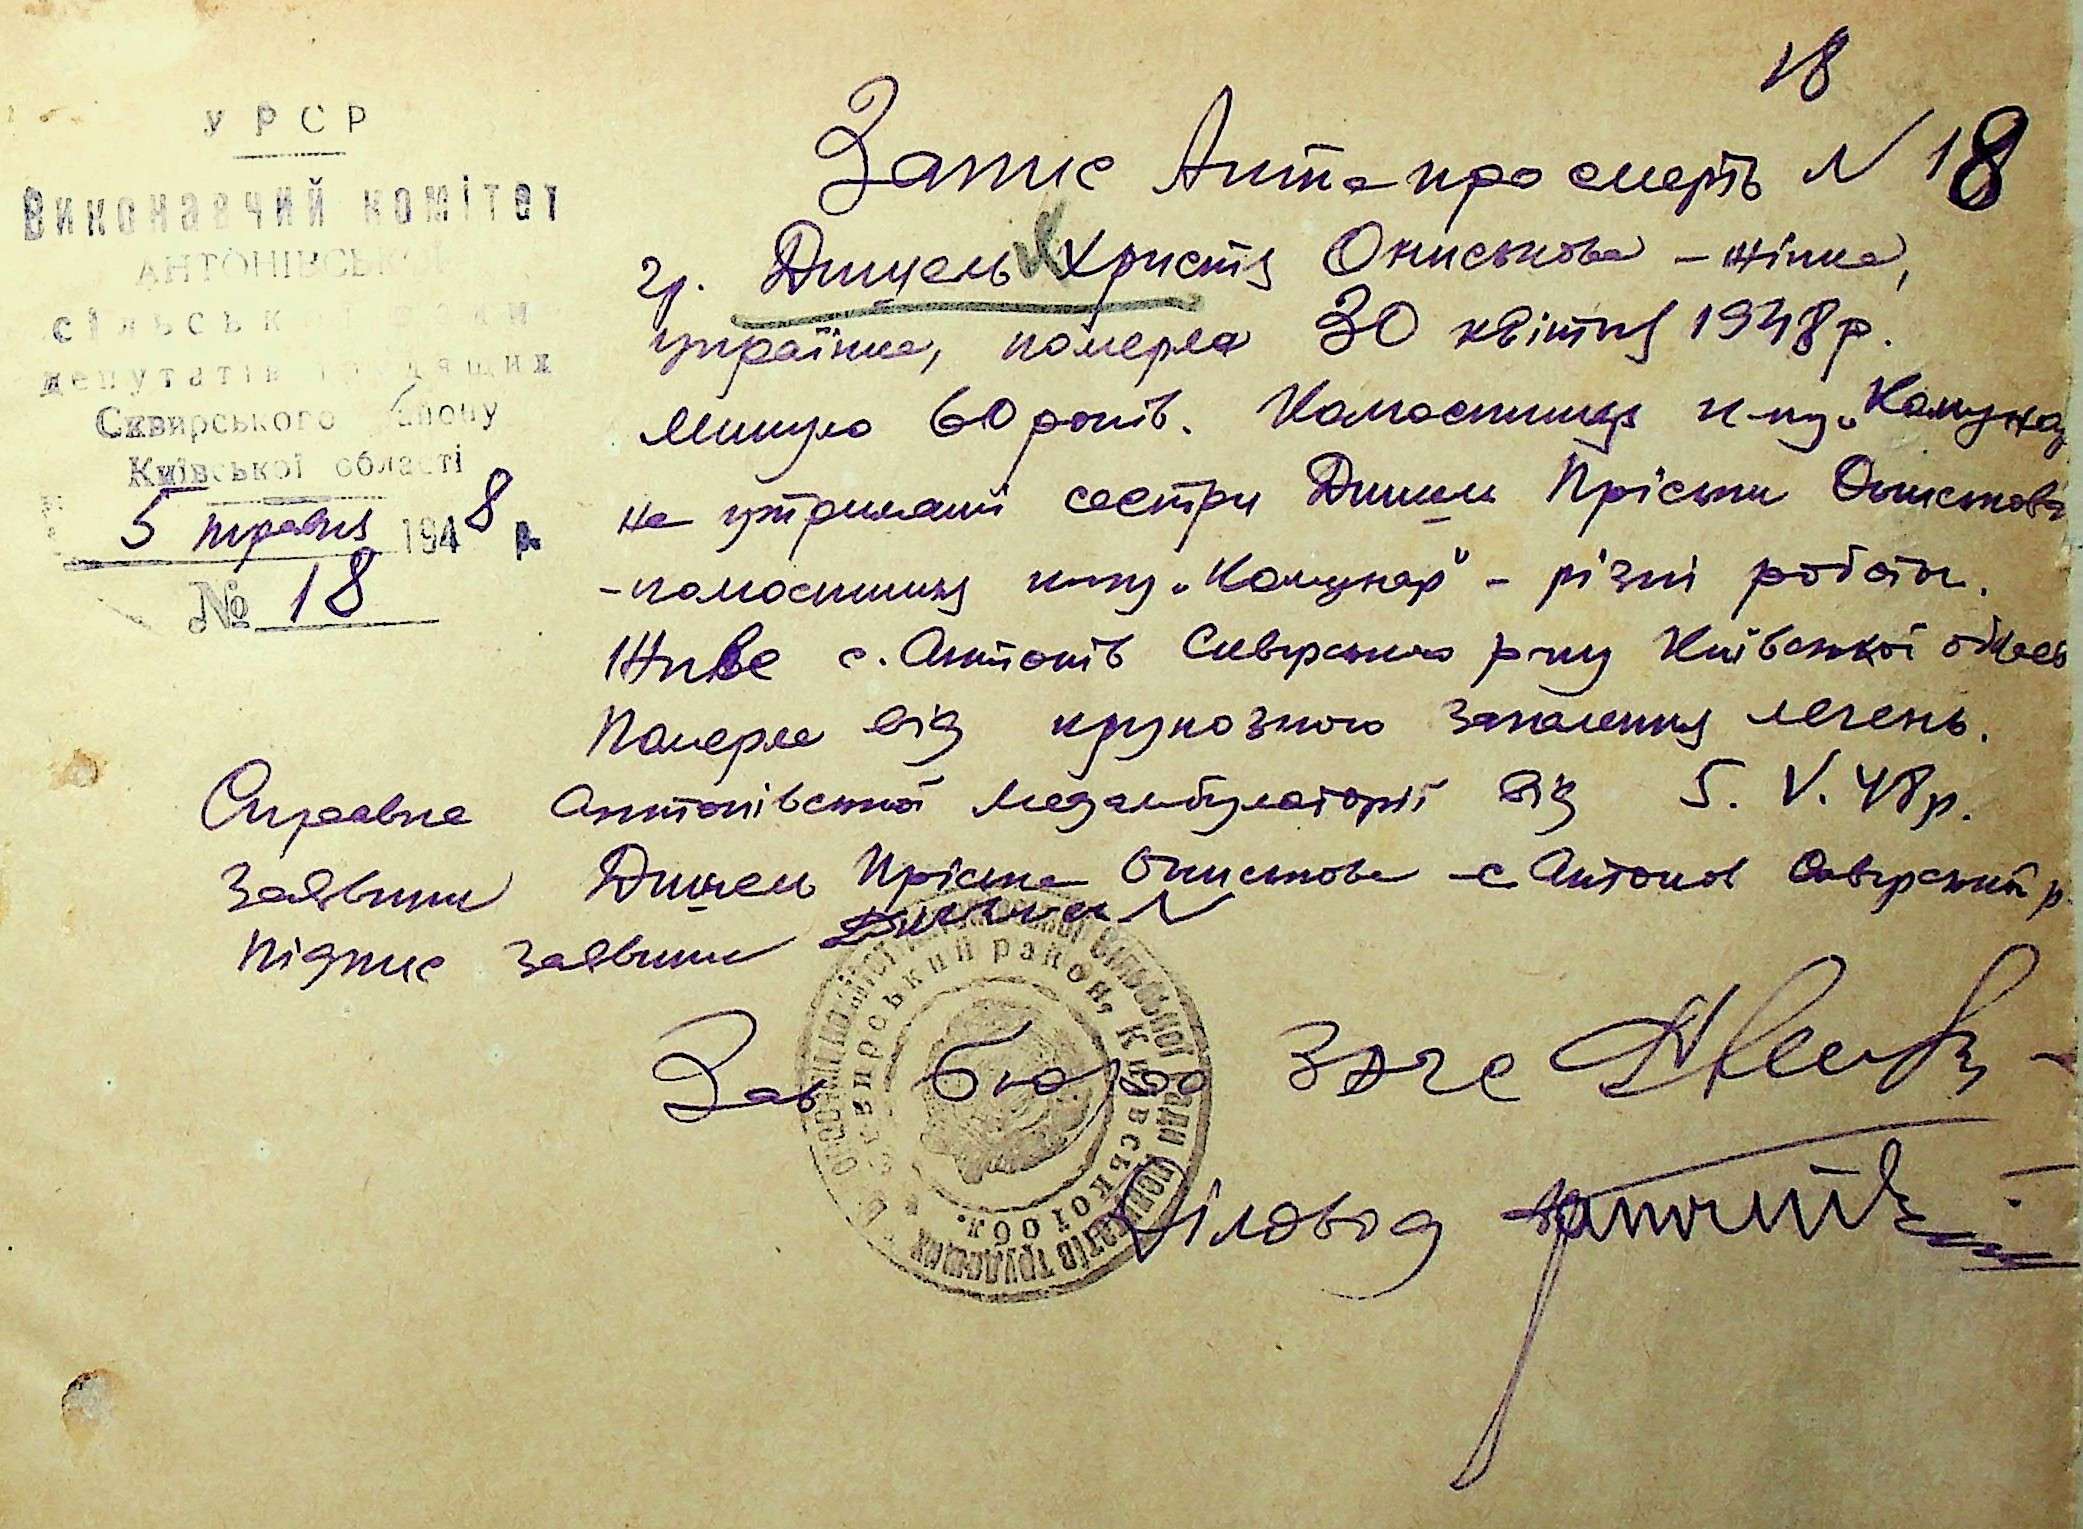 18
УРСР
Виконавчий комітет
АНТОНІВСЬК
сільської ради
депутатів трудящих
Сквирського району
Київської області
5 травня 1948 р.
№ 18
Запис Акта про смерть N 18
гр. Дишель Христя Ониськова - жінка,
українка, померла 30 квітня 1948 р.
минуло 60 років. Колгоспниця к-пу „Комунар
на утриманні сестри Дишель Пріськи Ониськов
- колгоспниця к-пу „Комунар" - різні роботи.
Живе с. Антонів Сквирського р-ну Київської област
Померла від крупозного запалення легень.
Справка Антонівської медамбулаторії від 5. V. 48 р.
Заявник Дишель Пріська Ониськова с. Антонов Сквирський р
Підпис заявника
Сквирський район, Київської обл.
сільської ради депутатів трудящих
Зав бюро ЗАГС
Діловод